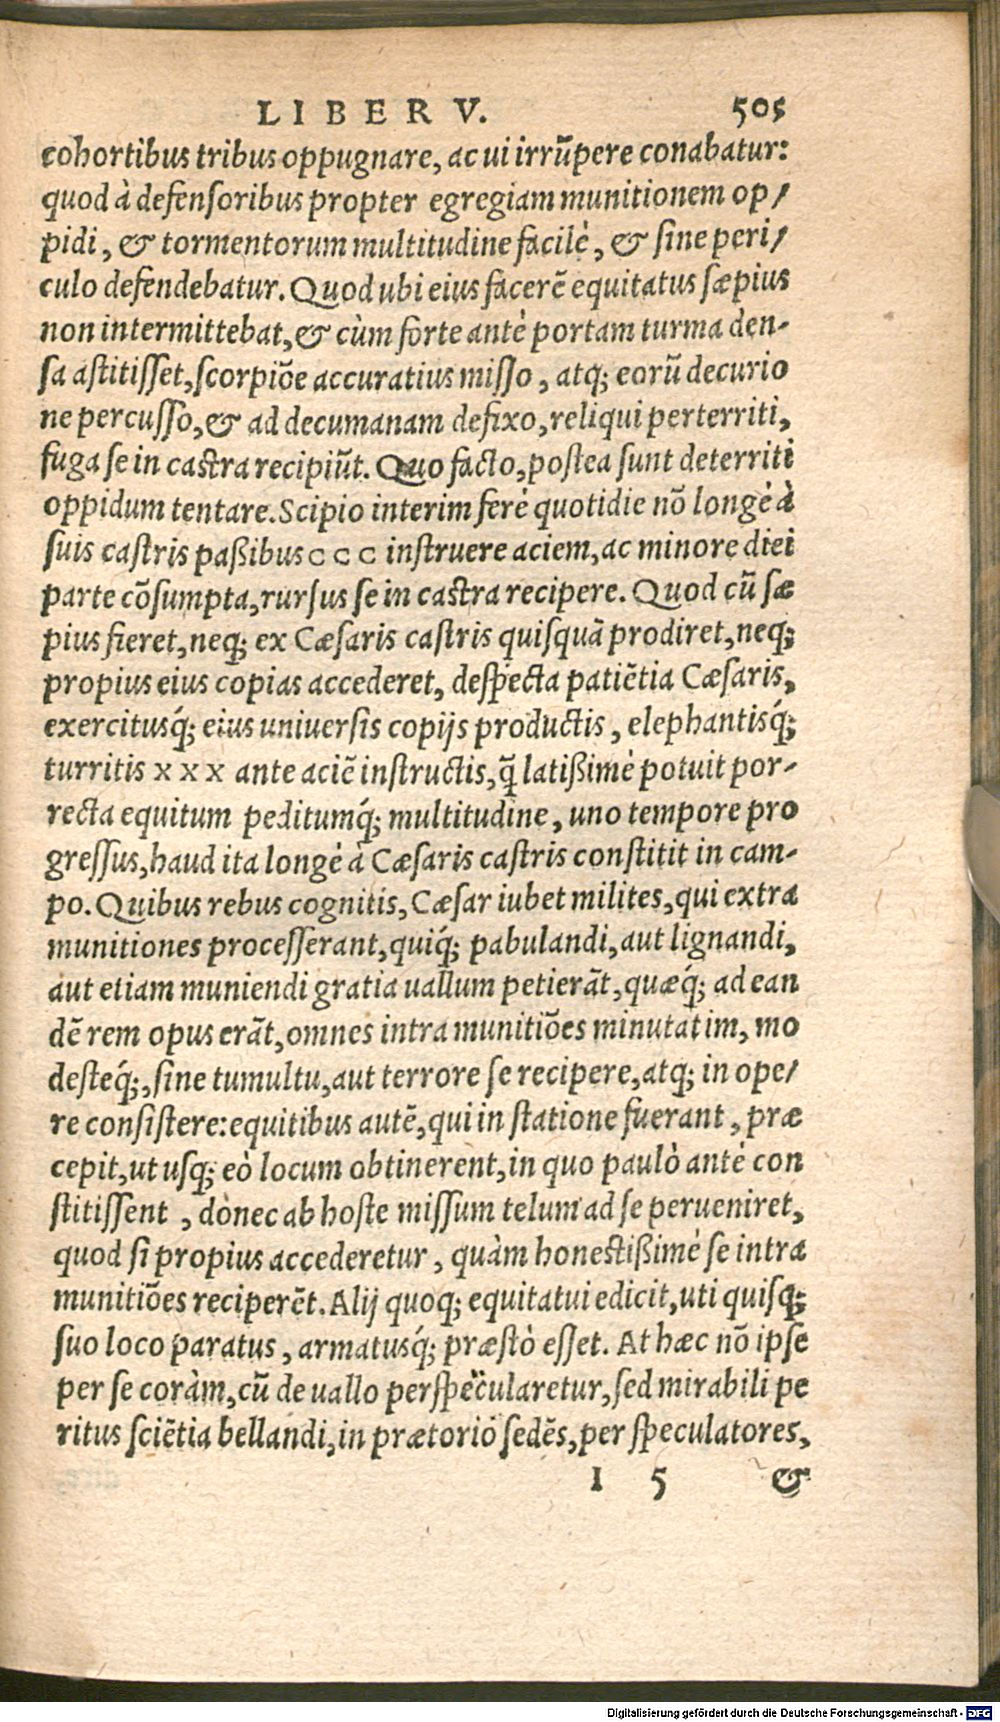 LIBER V. 505
cohortibus tribus oppugnare, ac ui irrũpere conabatur:
quod à defensoribus propter egregiam munitionem op/
pidi, & tormentorum multitudine facilè, & sine peri/
culo defendebatur. Quod ubi eius facerẽ equitatus sæpius
non intermittebat, & cùm forte antè portam turma den-
sa astitisset, scorpiõe accuratius misso, atq; eorũ decurio
ne percusso, & ad decumanam defixo, reliqui perterriti,
fuga se in castra recipiũt. Quo facto, postea sunt deterriti
oppidum tentare. Scipio interim ferè quotidie nõ longè à
suis castris paßibus CCC instruere aciem, ac minore diei
parte cõsumpta, rursus se in castra recipere. Quod cũ sæ
pius fieret, neq; ex Cæsaris castris quisquã prodiret, neq;
propius eius copias accederet, despecta patiẽtia Cæsaris,
exercitusq́; eius uniuersis copijs productis, elephantisq́;
turritis XXX ante aciẽ instructis, q̃ latißimè potuit por-
recta equitum peditumq́; multitudine, uno tempore pro
gressus, haud ita longè à Cæsaris castris constitit in cam-
po. Quibus rebus cognitis, Cæsar iubet milites, qui extra
munitiones processerant, quiq́; pabulandi, aut lignandi,
aut etiam muniendi gratia uallum petierãt, quæq́; ad ean
dẽ rem opus erãt, omnes intra munitiões minutatim, mo
desteq́;, sine tumultu, aut terrore se recipere, atq; in ope/
re consistere: equitibus autẽ, qui in statione fuerant, præ
cepit, ut usq; eò locum obtinerent, in quo paulò antè con
stitissent, donec ab hoste missum telum ad se perueniret,
quod si propius accederetur, quàm honestißimè se intra
munitiões reciperẽt. Alij quoq; equitatui edicit, uti quisq;
suo loco paratus, armatusq́; præstò esset. At hæc nõ ipse
per se coràm, cũ de uallo perspecularetur, sed mirabili pe
ritus sciẽtia bellandi, in prætorio sedẽs, per speculatores,
I 5 &
Digitalisierung gefördert durch die Deutsche Forschungsgemeinschaft - DFG